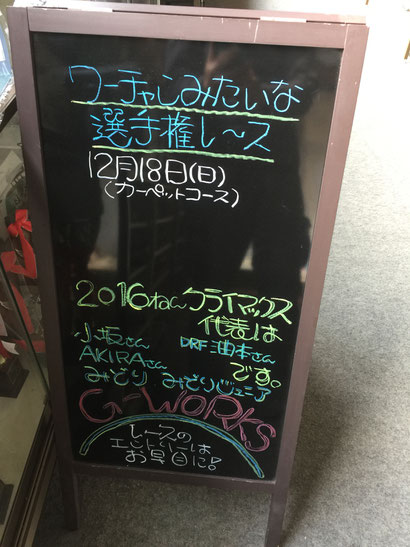 ワーチャンみたいな
選手権レース
12月18日(日)
(カーペットコース)
2016ねんクライマックス
代表は
小坂さん DRF油本さん
AKIRAさん です。
みどり みどりジュニア
G-WORKS
レースの
エントリーは
お早目に!